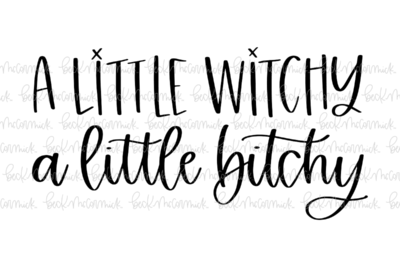 A LITTLE WITCHY
a little bitchy